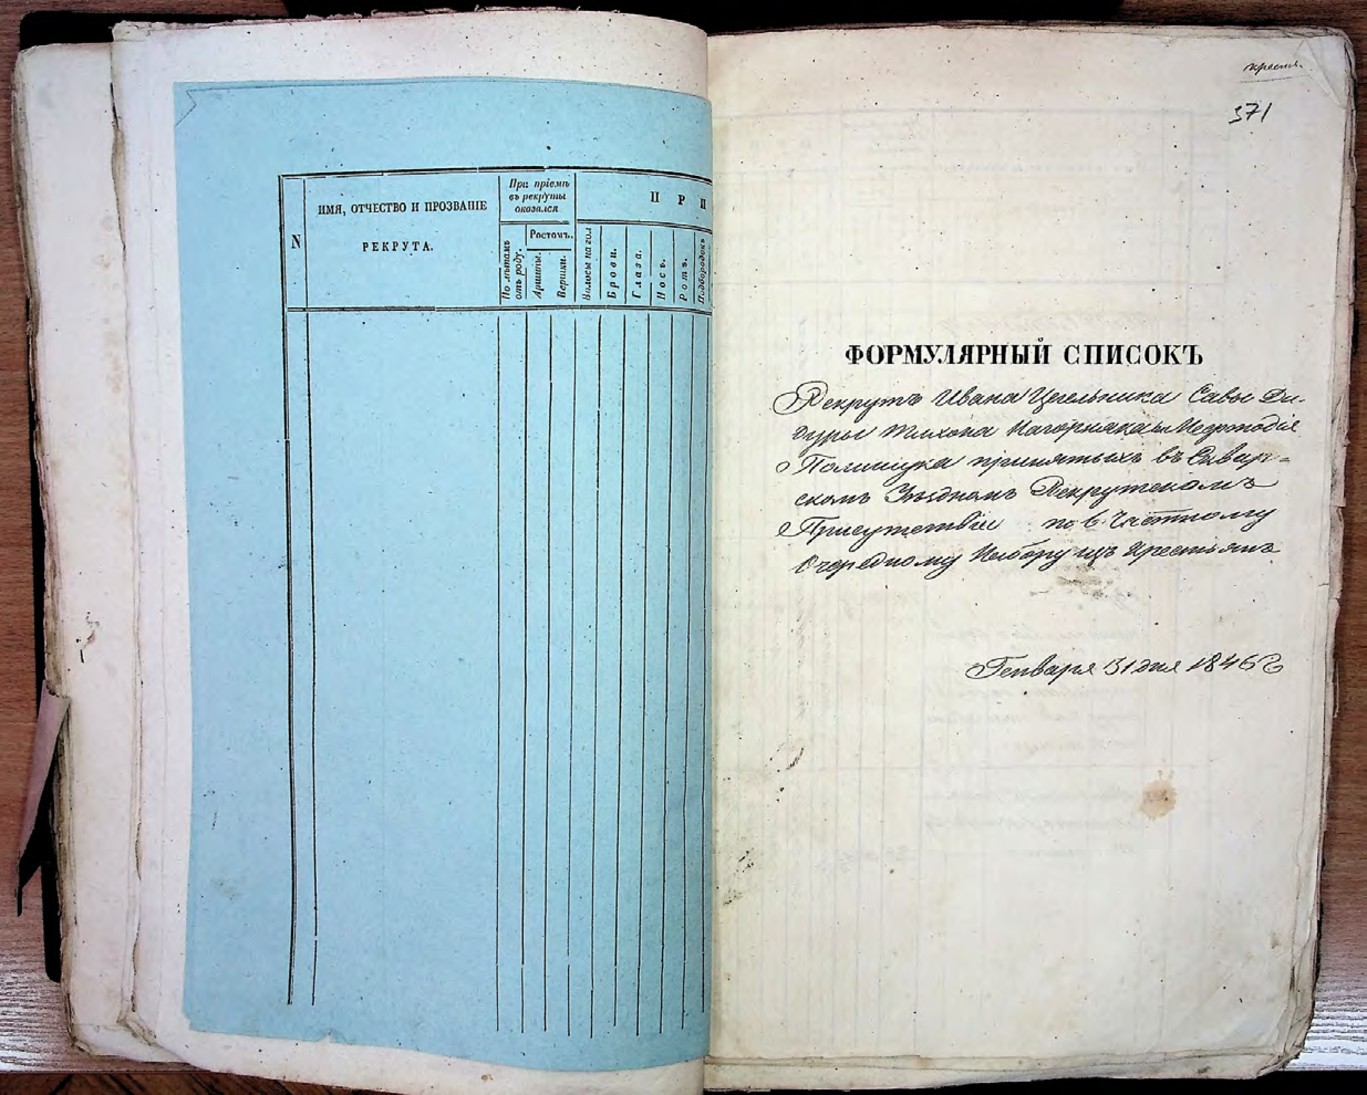 N
ИМЯ, ОТЧЕСТВО И ПРОЗВАНІЕ
РЕКРУТА.
При пріемѣ
въ рекруты
оказался
По лѣтамъ
отъ роду.
Ростомъ.
Аршины.
Вершки.
П Р И
Волосы на гол
Брови.
Глаза.
Носъ.
Ротъ.
Подбородокъ
371
ФОРМУЛЯРНЫЙ СПИСОКЪ
Рекрутъ Ивана Цегельника Савы Ди-
дуры Тихона Нагорняка и Мефтодія
Полищука принятыхъ въ
скомъ Уѣздномъ Рекрутскомъ
Присутствіи по 6 Частному
Очередному Набору изъ Крестьянъ
Генваря 31 дня 1846